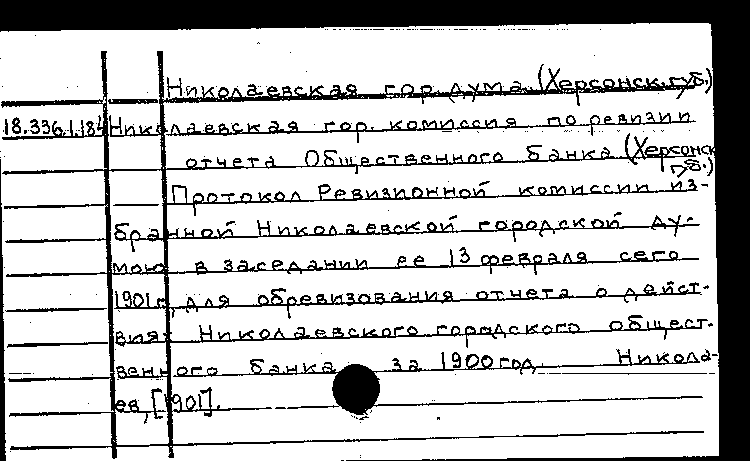 Николаевская гор. дума (Херсонск.губ.)
18.336.1.184 Николаевская гор. комиссия по ревизии
отчета Общественного банка (Херсонск.
губ.)
Протокол Ревизионной комиссии из-
бранной Николаевской городской ду-
мою в заседании ее 13 февраля сего
1901 г. для обревизования отчета о дейст-
виях Николаевского городского общест-
венного банка за 1900 год. Никола-
ев, [1901].